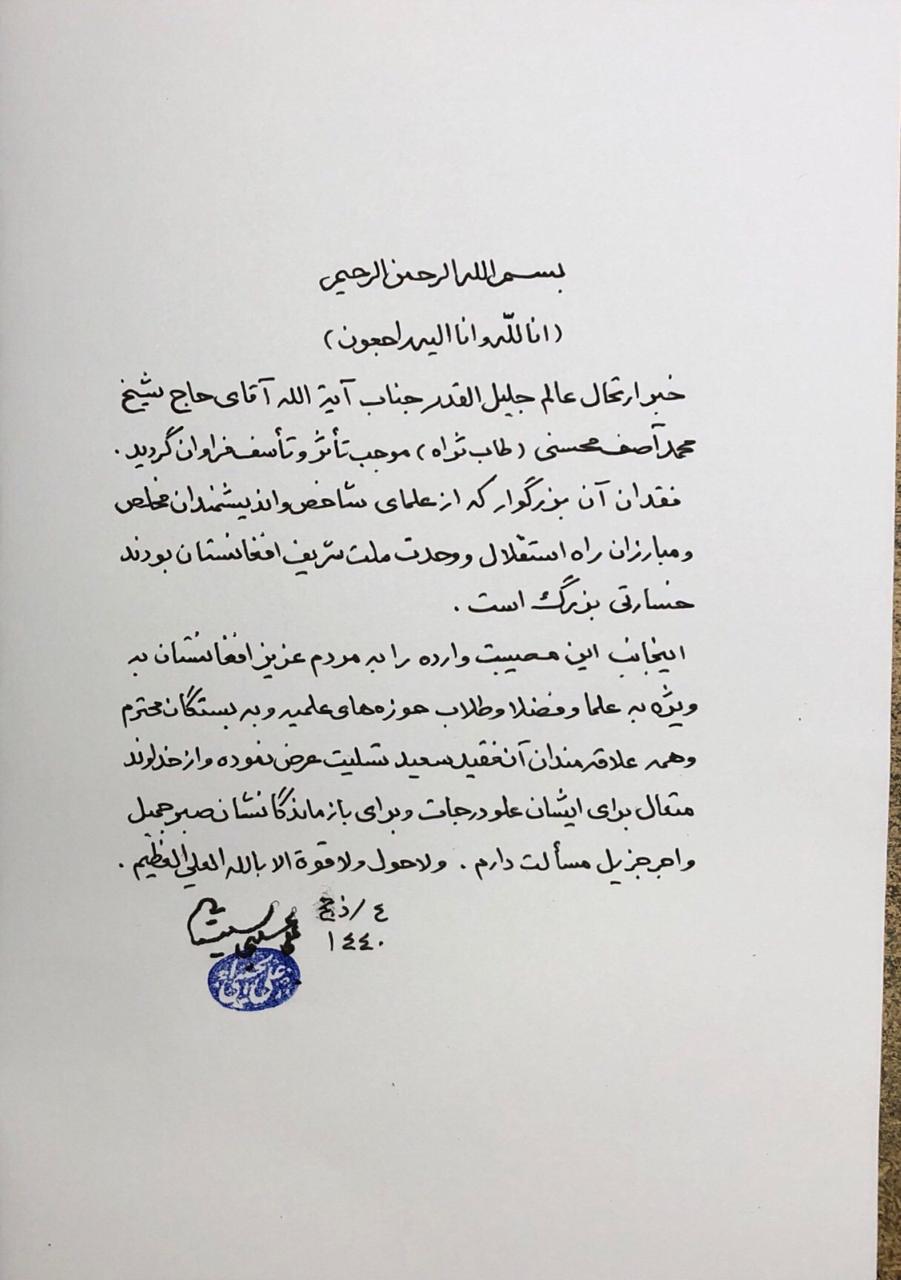 بسم الله الرحمن الرحیم
(انا لله وانا الیه راجعون)
خبر ارتحال عالم جلیل القدر جناب آیة الله آقای حاج شیخ
محمد آصف محسنی (طاب ثراه) موجب تأثر و تأسف فراوان گردید.
فقدان آن بزرگوار که از علمای شاخص واندیشمندان مخلص
ومبارزان راه استقلال ووحدت ملت شریف افغانستان بودند
خسارتی بزرگ است.
اینجانب این مصیبت وارده را به مردم عزیز افغانستان به
ویژه به علما وفضلا وطلاب حوزه‌های علمیه وبه بستگان محترم
وهمه علاقه مندان آن فقید سعید تسلیت عرض نموده واز خداوند
متعال برای ایشان علو درجات وبرای بازماندگانشان صبر جمیل
واجر جزیل مسألت دارم. ولا حول ولا قوة الا بالله العلي العظيم.
٤/ذح
١٤٤٠
علی الحسینی السیستانی